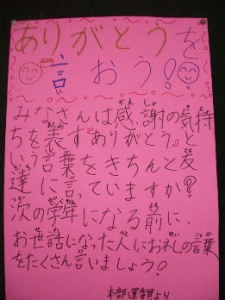 ありがとうを
言おう!
みなさんは感謝の気持
ちを表す『ありがとう』と
いう言葉をきちんと友
達に言っていますか?
次の学年になる前に、
お世話になった人にお礼の言葉
をたくさん言いましょう!
本部運営委より